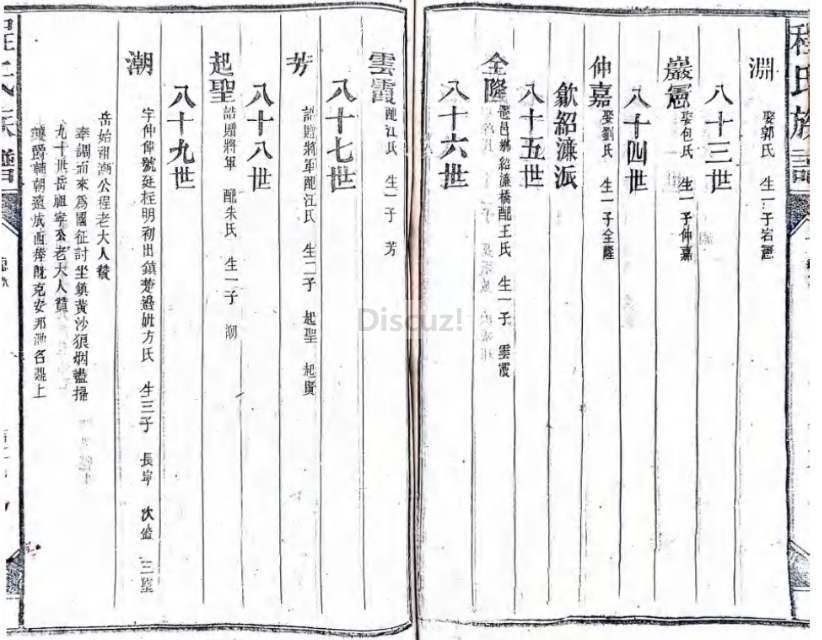 程氏族譜
淵
娶郭氏 生一子岩憲
八十三世
巖憲
娶包氏 生一子仲嘉
八十四世
仲嘉
娶劉氏 生一子全隆
歙紹濂派
八十五世
全隆
邑鄉紹濂橋配王氏 生一子 雲霞
八十六世
雲霞
配江氏 生一子 芳
八十七世
芳
誥贈將軍配江氏 生二子 起聖 起賓
八十八世
起聖
誥贈將軍 配朱氏 生一子 潮
八十九世
潮
字仲偉號廷桎明初出鎮楚邊 方氏 生三子 長寧 次盛 三
岳始祖潮公程老大人贊
奉詔南來為國征討坐鎮黃沙狼烟盡掃
九十世岳祖寧公老大人贊
爵輔朝 既克安邦 名 上
程氏族譜
Discuz!